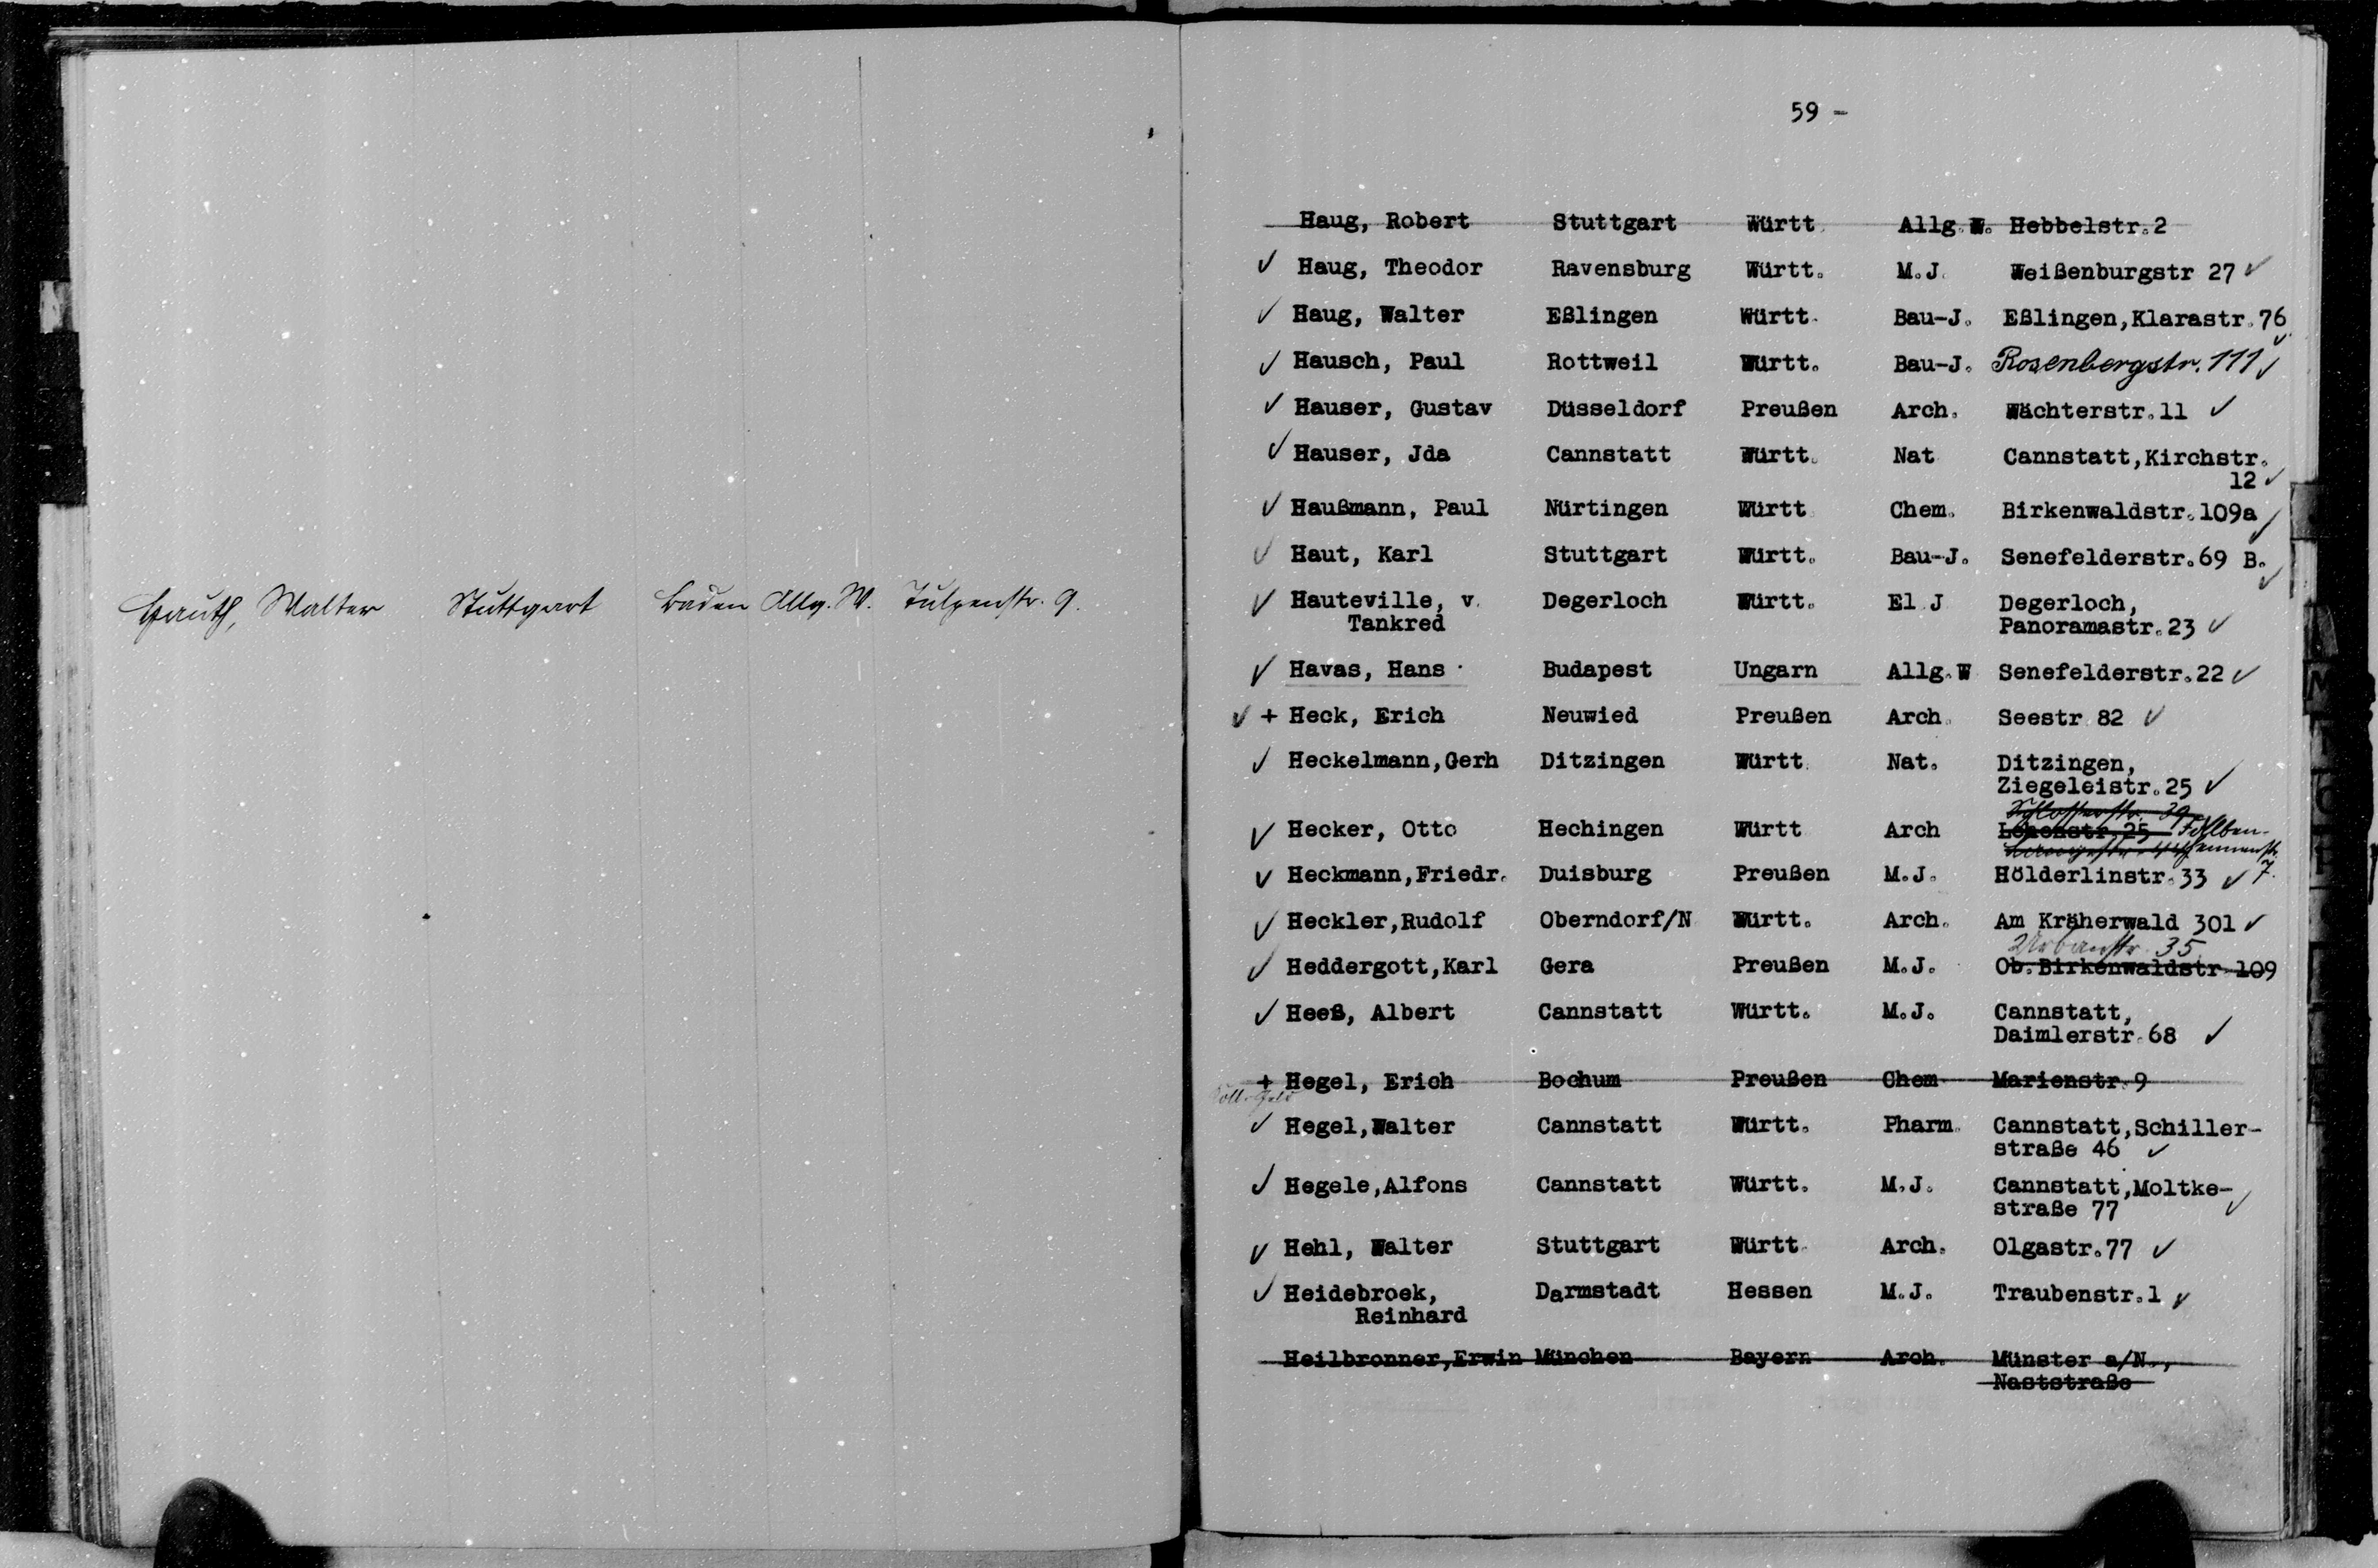 Hauth, Walter Stuttgart Baden Allg. W. Tulpenstr. 9.
59 -
Haug, Robert Stuttgart Württ Allg.W. Hebbelstr.2
✓ Haug, Theodor Ravensburg Württ. M.J. Weißenburgstr 27 ✓
✓ Haug, Walter Eßlingen Württ. Bau-J. Eßlingen,Klarastr.76 ✓
✓ Hausch, Paul Rottweil Württ. Bau-J. Rosenbergstr. 111 ✓
✓ Hauser, Gustav Düsseldorf Preußen Arch. Wächterstr.11 ✓
✓ Hauser, Jda Cannstatt Württ. Nat Cannstatt,Kirchstr.
12 ✓
✓ Haußmann, Paul Nürtingen Württ Chem. Birkenwaldstr.109a ✓
✓ Haut, Karl Stuttgart Württ. Bau-J. Senefelderstr.69 B. ✓
✓ Hauteville, v. Degerloch Württ. El J Degerloch,
Tankred Panoramastr.23 ✓
✓ Havas, Hans Budapest Ungarn Allg.W Senefelderstr.22 ✓
✓ + Heck, Erich Neuwied Preußen Arch. Seestr 82 ✓
✓ Heckelmann,Gerh Ditzingen Württ Nat. Ditzingen,
Ziegeleistr.25 ✓
Schlosserstr. 39
✓ Hecker, Otto Hechingen Württ Arch
✓ Heckmann,Friedr. Duisburg Preußen M.J. Hölderlinstr.33 ✓ 7.
✓ Heckler,Rudolf Oberndorf/N Württ. Arch. Am Kräherwald 301 ✓
Urbanstr. 35
✓ Heddergott,Karl Gera Preußen M.J. Ob.Birkenwaldstr 109
✓ Heeß, Albert Cannstatt Württ. M.J. Cannstatt,
Daimlerstr.68 ✓
+ Hegel, Erich Bochum Preußen Chem Marienstr.9
✓ Hegel,Walter Cannstatt Württ. Pharm. Cannstatt,Schiller-
straße 46 ✓
✓ Hegele,Alfons Cannstatt Württ. M.J. Cannstatt,Moltke-
straße 77 ✓
✓ Hehl, Walter Stuttgart Württ. Arch. Olgastr.77 ✓
✓ Heidebroek, Darmstadt Hessen M.J. Traubenstr.1 ✓
Reinhard
Heilbronner,Erwin München Bayern Arch. Münster a/N.,
Naststraße